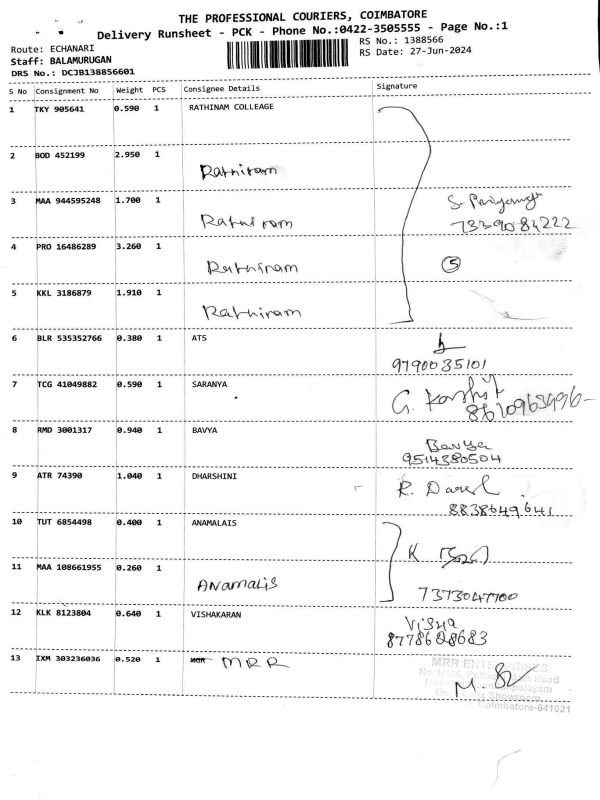 THE PROFESSIONAL COURIERS, COIMBATORE
Delivery Runsheet - PCK - Phone No.:0422-3505555 - Page No.:1
Route: ECHANARI
RS No.: 1388566
Staff: BALAMURUGAN
RS Date: 27-Jun-2024
DRS No.: DCJB138856601
S No Consignment No Weight PCS Consignee Details Signature
1 TKY 905641 0.590 1 RATHINAM COLLEAGE
2 BOD 452199 2.950 1 Rathiram
3 MAA 944595248 1.700 1 Rathiram S. Priyanga
7339084222
4 PRO 16486289 3.260 1 Rathiram 5
5 KKL 3186879 1.910 1 Rathiram
6 BLR 535352766 0.380 1 ATS
9790035101
7 TCG 41049882 0.590 1 SARANYA G.
8 RMD 3001317 0.940 1 BAVYA Bavya
9514380504
9 ATR 74390 1.040 1 DHARSHINI R.
8838649641
10 TUT 6854498 0.400 1 ANAMALAIS K
11 MAA 108661955 0.260 1 ANAMALIS 7373047700
12 KLK 8123804 0.640 1 VISHAKARAN Visha
8778628683
13 IXM 303236036 0.520 1 MGR MRR
MRR ENTERPRISES
Road
Showroom
Coimbatore-641021